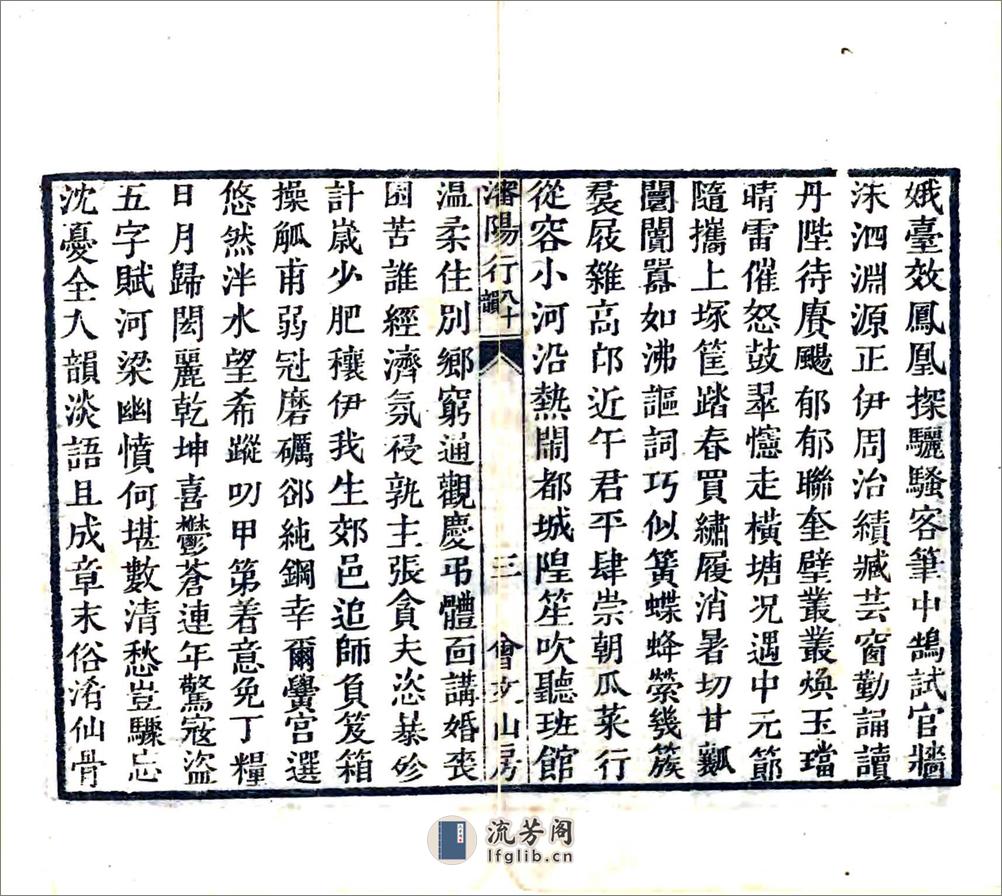 娥臺效鳳凰探驪騷客筆中鵠試官牆
洙泗淵源正伊周治績臧芸窗勤誦讀
丹陛待賡颺郁郁聯奎璧叢叢煥玉璫
晴雷催怒鼓翠幰走橫塘况遇中元節
隨攜上塚筐踏春買繡履消暑切甘瓤
闤闠囂如沸謳詞巧似簧蝶蜂縈幾簇
裠屐雜高邙近午君平肆崇朝瓜菜行
從容小河沿熱鬧都城隍笙吹聽班館
瀋陽行八十韻 三 會文山房
温柔住別鄉窮通觀慶弔體面講婚喪
困苦誰經濟氛祲孰主張貪夫恣暴殄
計歲少肥穰伊我生郊邑追師負笈箱
操觚甫弱冠磨礪郤純鋼幸爾黌宮選
悠然泮水望希蹤叨甲第着意免丁糧
日月歸閎麗乾坤喜鬱蒼連年驚寇盜
五字賦河梁幽憤何堪數清愁豈驟忘
沈憂全入韻淡語且成章末俗淆仙骨
流芳阁
lfglib.cn